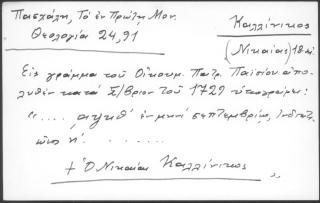 Πασχάλη, Τὸ ἐν Πρώτῃ Μον.
Θεολογία 24, 91
Καλλίνικος
(Νικαίας) 18 αἰ
Εἰς γράμμα τοῦ Οἰκουμ. Πατρ. Παϊσίου ἀπο-
λυθὲν κατὰ Σ/βριον τοῦ 1729 ὑπογράφει:
"....  ἐν μηνὶ σεπτεμβρίῳ, Ἰνδικτ.
. . . . . . .
+ Ὁ Νικαίας Καλλίνικος